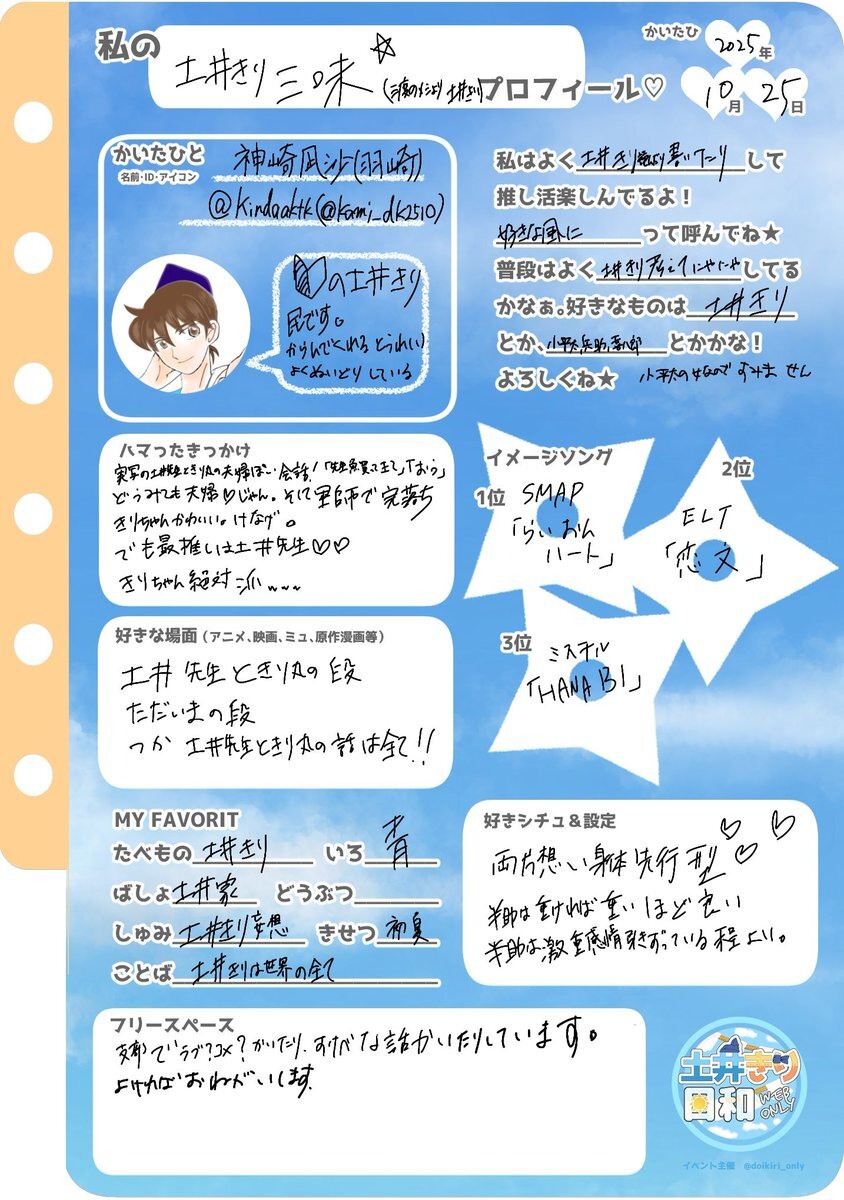 私の
土井きり三昧☆
プロフィール♡
かいたひ
2025年
10月25日
かいたひと
名前・ID・アイコン
神崎凪沙(羽崎)
@kindaaktk(@kami_dk2510)
の土井きり
民です。
からんでくれるとうれしい
よくぬいどりしている
私はよく土井きり書いたりして
推し活楽しんでるよ!
好きな風にって呼んでね★
普段はよく土井きり考えてにゃにゃしてる
かなぁ。好きなものは土井きり
とか、とかかな!
よろしくね★
小平太の女なのですみません
ハマったきっかけ
実写の土井先生ときり丸の夫婦ぽい会話!「先生魚買ってきて」「おう」
どうみても夫婦♡じゃん。そして軍師で完落ち
きりちゃんかわいい。けなげ。
でも最推しは土井先生♡♡
きりちゃん絶対派
イメージソング
1位
SMAP
「らいおん
ハート」
2位
ELT
「恋文」
3位
ミスチル
「HANABI」
好きな場面(アニメ、映画、ミュ、原作漫画等)
土井先生ときり丸の段
ただいまの段
つか 土井先生ときり丸の話は全て!!
MY FAVORIT
たべもの 土井きり いろ 青
ばしょ 土井家 どうぶつ
しゅみ 土井きり妄想 きせつ 初夏
ことば 土井きりは世界の全て
好きシチュ&設定
両片想い身体先行型♡♡♡
半助は重ければ重いほど良い
半助は激重感情引きずっている程よい。
フリースペース
支部でラブ?コメ?かいたり、すけべな話かいたりしています。
よければおねがいします
土井きり
日和
WEB
ONLY
イベント主催 @doikiri_only